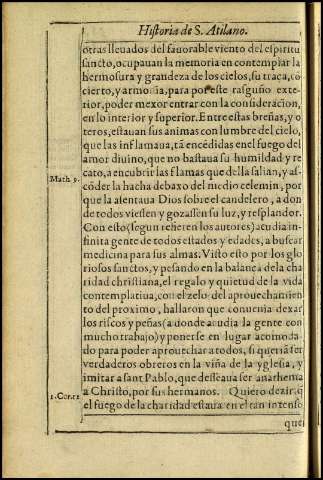 Historia de S. Atilano.
otras lleuados del fauorable viento del espiritu
sancto, ocupauan la memoria en contemplar la
hermosura y grandeza de los cielos, su traça, cõ
cierto, y armonia, para por este rasguño exte-
rior, poder mexor entrar con la consideracion,
en lo interior y superior. Entre estas breñas, y o
teros, estauan sus animas con lumbre del cielo,
que las inflamaua, tã encẽdidas en el fuego del
amor diuino, que no bastaua su humildad y re
cato, a encubrir las flamas que della salian, y as-
cõder la hacha debaxo del medio celemin, por
Math 9.
que la asentaua Dios sobre el candelero, a don
de todos viessen y gozassen su luz, y resplandor.
Con esto (segun refieren los autores) acudia in-
finita gente de todos estados y edades, a buscar
medicina para sus almas. Visto esto por los glo
riosos sanctos, y pesando en la balança dela cha
ridad christiana, el regalo y quietud de la vida
contemplatiua, con el zelo del aprouechamien
to del proximo, hallaron que conuenia dexar
los riscos y peñas (a donde acudia la gente con
mucho trabajo) y ponerse en lugar acomoda
do para poder aprouechar a todos, si queriã ser
verdaderos obreros en la viña de la yglesia, y
imitar a sant Pablo, que desseaua ser anathema
a Christo, por sus hermanos. Quiero dezir, q̃
1. Cor. 11
el fuego de la charidad estaua en el tan intenso
que